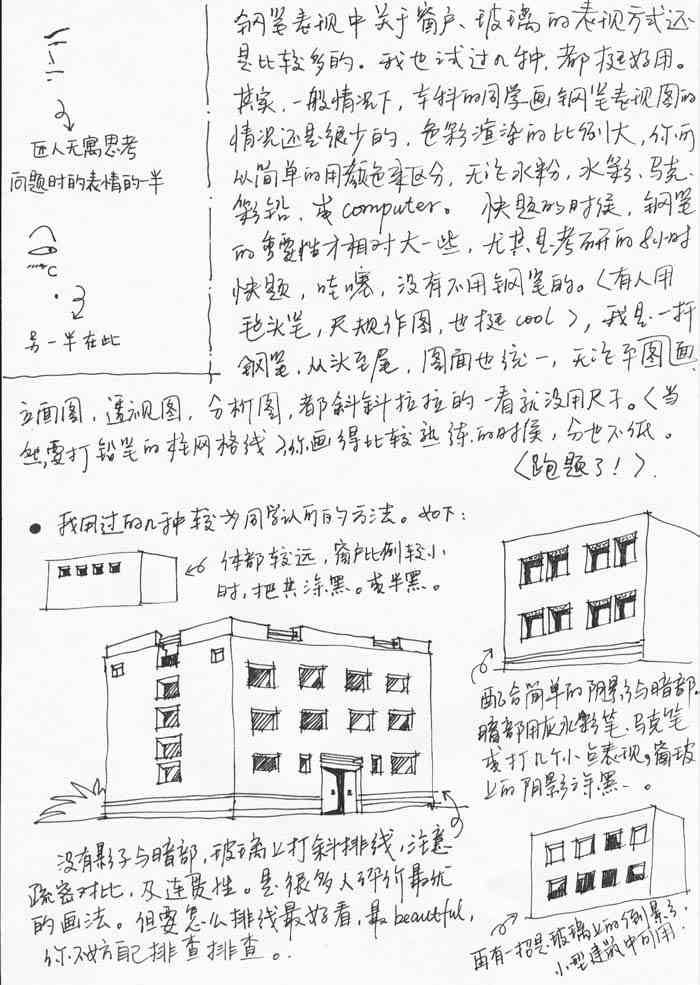 匠人无寓思考
问题时的表情的一半
另一半在此
钢笔表现中关于窗户、玻璃的表现方式还
是比较多的。我也试过几种，都挺好用。
其实，一般情况下，本科的同学画钢笔表现图的
情况还是很少的，色彩渲染的比例大，你可
以简单的用颜色来区分，无论水粉，水彩、马克、
彩铅，或computer。快题的时候，钢笔
的重要性才相对大一些，尤其是考研的8小时
快题，哇噻，没有不用钢笔的。〈有人用
毛头笔，尺规作图，也挺cool〉，我是一杆
钢笔，从头至尾，图面也统一，无论平图面
立面图，透视图，分析图，都斜斜拉拉的一看就没用尺子。〈当
然，要打铅笔的柱网格线〉你画得比较熟练的时候，分也不低。
〈跑题了！〉
● 我用过的几种较为同学认可的方法。如下：
体部较远，窗户比例较小
时，把其涂黑。或半黑。
配合简单的阴影与暗部，
暗部用灰水彩笔、马克笔
或打几个小点表现。窗玻
上的阴影涂黑、。
没有影子与暗部，玻璃上打斜排线，注意
疏密对比，及连贯性。是很多人评价最优
的画法。但要怎么排线最好看，最beautiful，
你不妨自己排查排查。
再有一招是玻璃上的倒影，
小型建筑中可用。